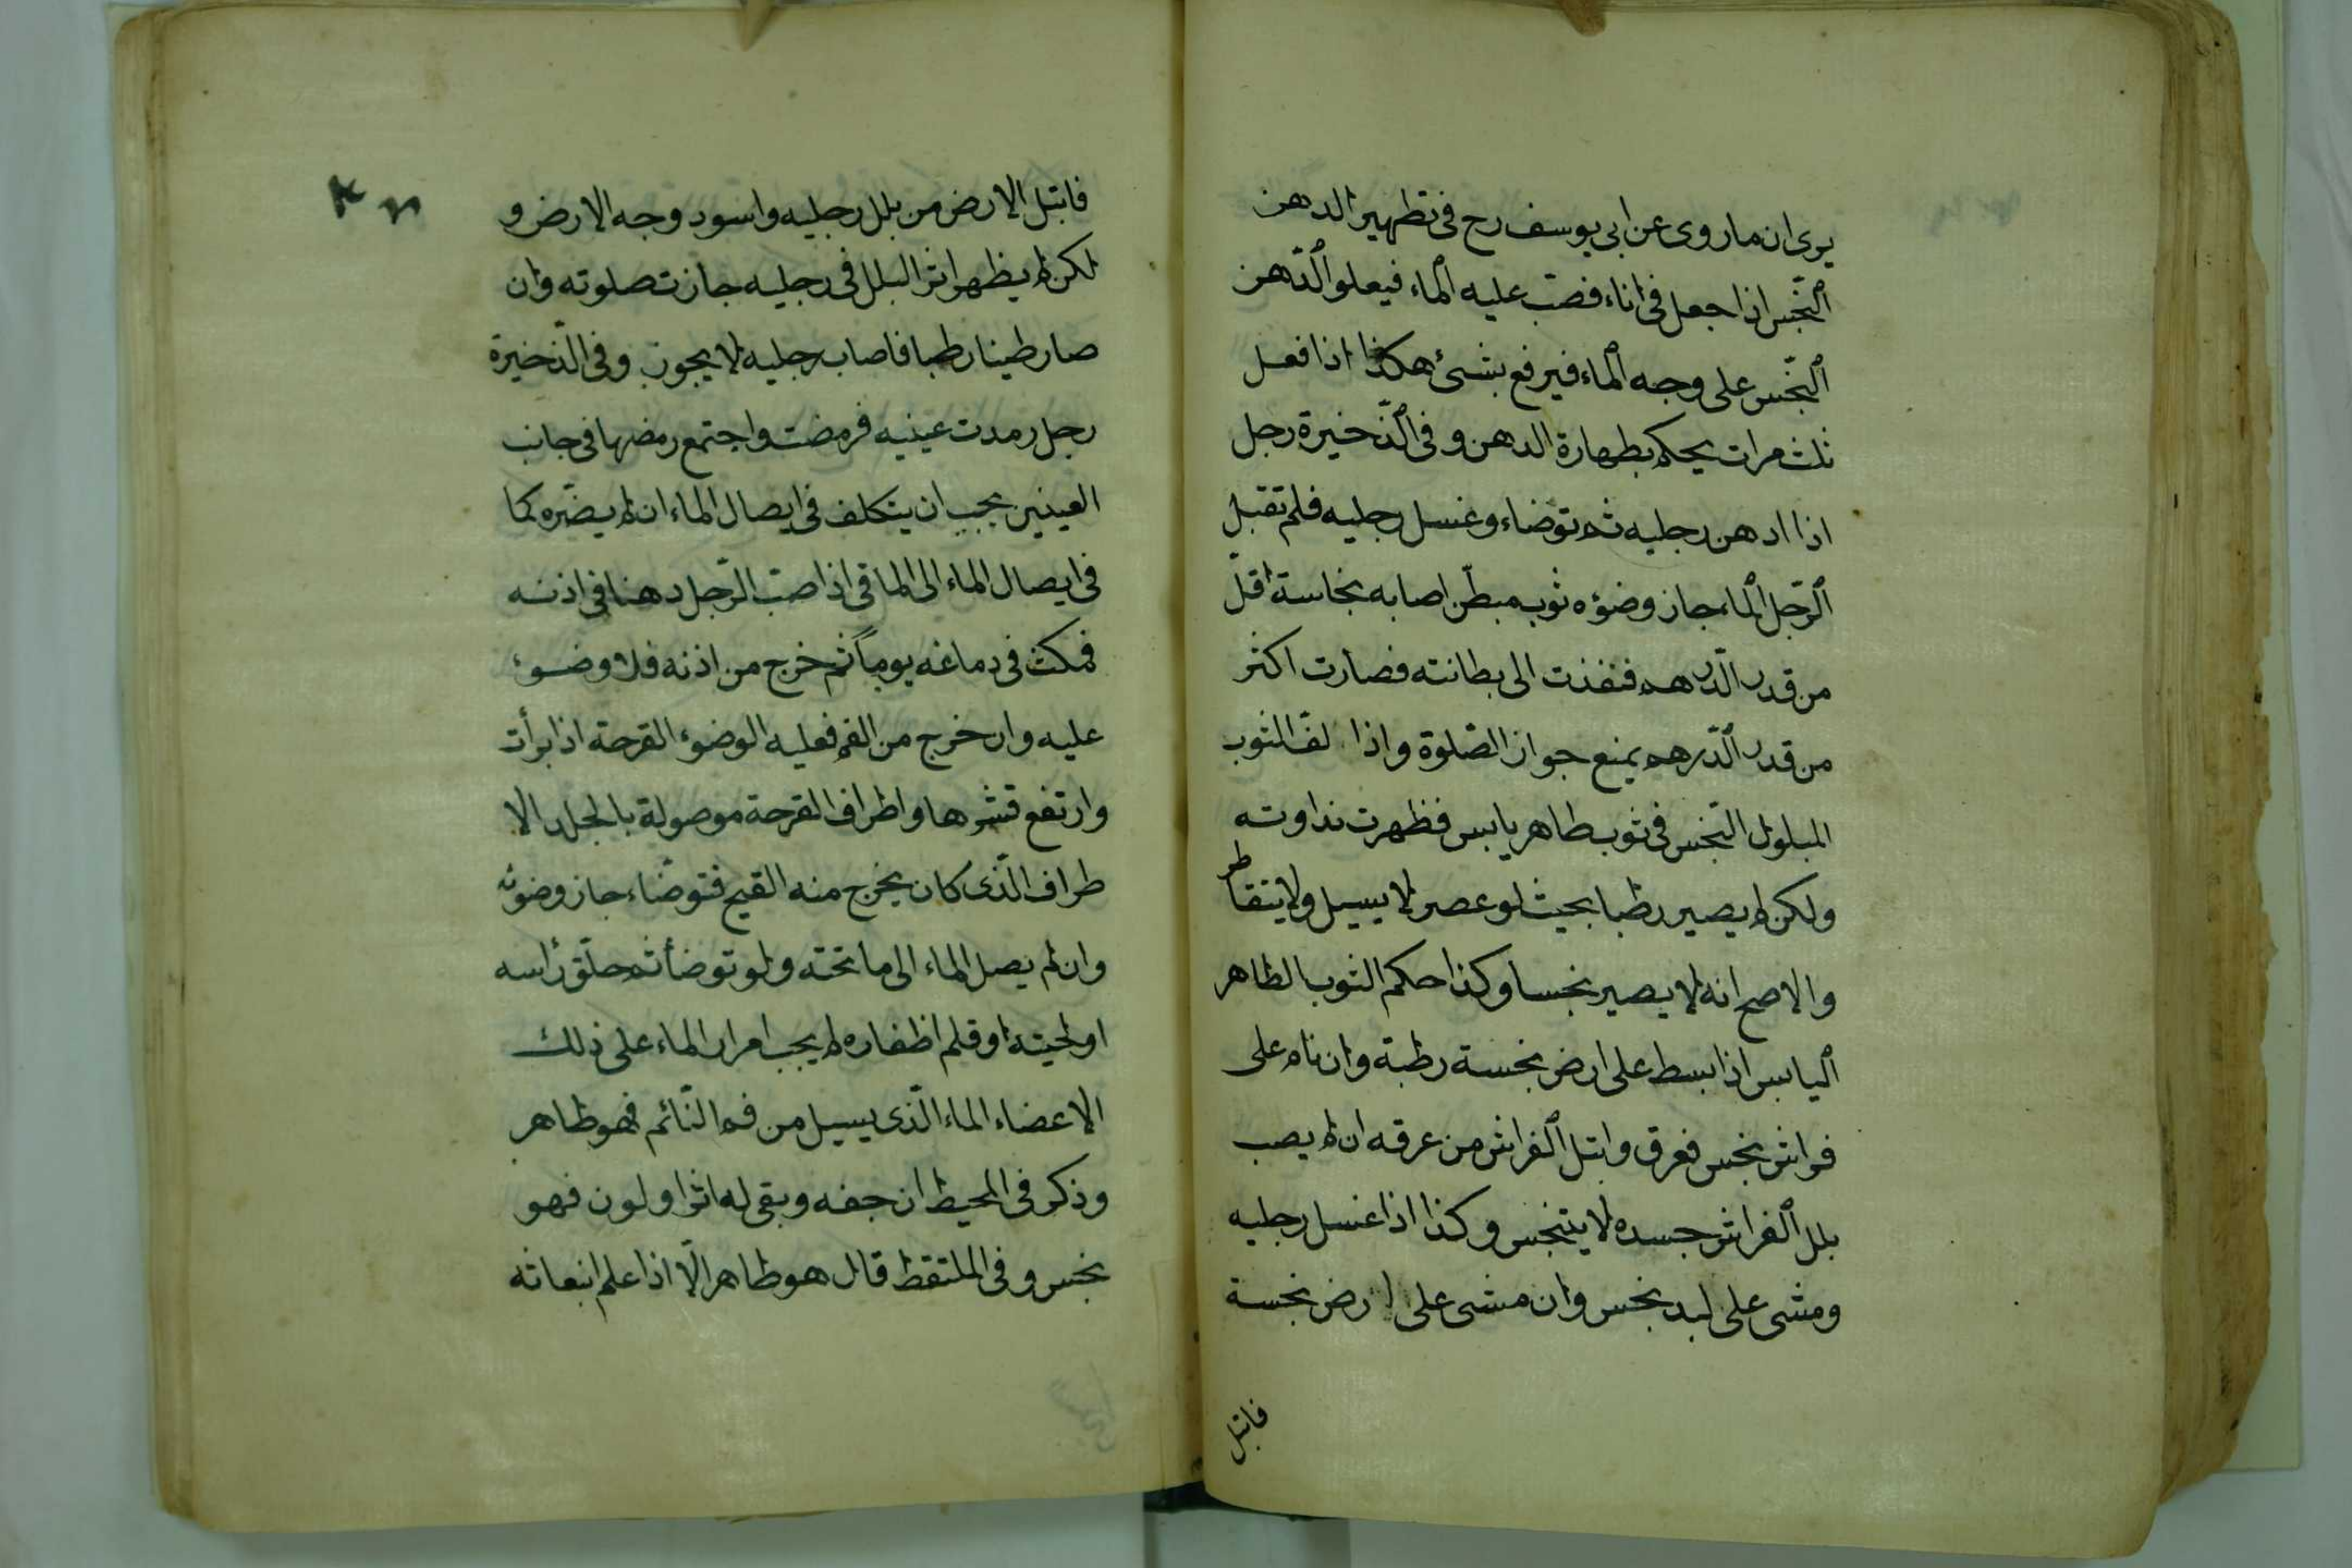 يرى ان ما روى عن ابى يوسف رح فى تطهير الدهن
ٱلنّجس اذا جعل فى اناء فصب عليه ٱلماء فيعلو ٱلدّهن
ٱلنّجس على وجه ٱلماء فيرفع بشئ هكذا اذا فعل
ثلث مرات يحكم بطهارة الدهن و فى ٱلذّخيرة رجل
اذا ادهن رجليه ثم توضاء وغسل رجليه فلم تقبل
ٱلرّجل ٱلماء جاز وضوءه ثوب مبطّن اصابه نجاسة اقلّ
من قدر الدّرهم فنفذت الى بطانته فصارت اكثر
من قدر ٱلدّرهم يمنع جواز الصّلوة واذا لفّ الثوب
المبلول النّجس فى ثوب طاهر يابس فظهرت نداوته
ولكن لم يصير رطبا بحيث لو عصر لا يسيل ولا يتقاطر
والاصح انه لا يصير نجسا وكذا حكم الثوب الطاهر
ٱليابس اذا بسط على ارض نجسة رطبة وان نام على
فراش نجس فعرق وابتل ٱلفراش من عرقه ان لم يصب
بلل ٱلفراش جسده لا يتنجس وكذا اذا غسل رجليه
ومشى على لبد نجس وان مشى على ارض نجسة
فابتل
فابتل الارض من بلل رجليه واسود وجه الارض و
لكن لم يظهر اثر البلل فى رجليه جازت صلوته وان
صار طينا رطبا فاصاب رجليه لا يجوز وفى الذّخيرة
رجل رمدت عينيه فرمضت واجتمع رمضها فى جانب
العينين يجب ان يتكلف فى ايصال الماء ان لم يضّره كما
فى ايصال الماء الى الماقى اذا صبّ الرّجل دهنا فى اذنه
فمكث فى دماغه يوماً ثم خرج من اذنه فلا وضوء
عليه وان خرج من الفم فعليه الوضوء القرحة اذا برأت
وارتفع قشرها واطراف القرحة موصولة بالجلد الا
طراف الّذى كان يخرج منه القيح فتوضّاء جاز وضوئه
وان لم يصل الماء الى ما تحته ولو توضأ ثم حلّق رأسه
او لحيته او قلم اظفاره لم يجب امرار الماء على ذلك
الاعضاء الماء الّذى يسيل من فم النّائم فهو طاهر
وذكر فى المحيط ان جفه وبقى له اثر او لون فهو
نجس و فى الملتقط قال هو طاهر الّا اذا علم انبعاثه